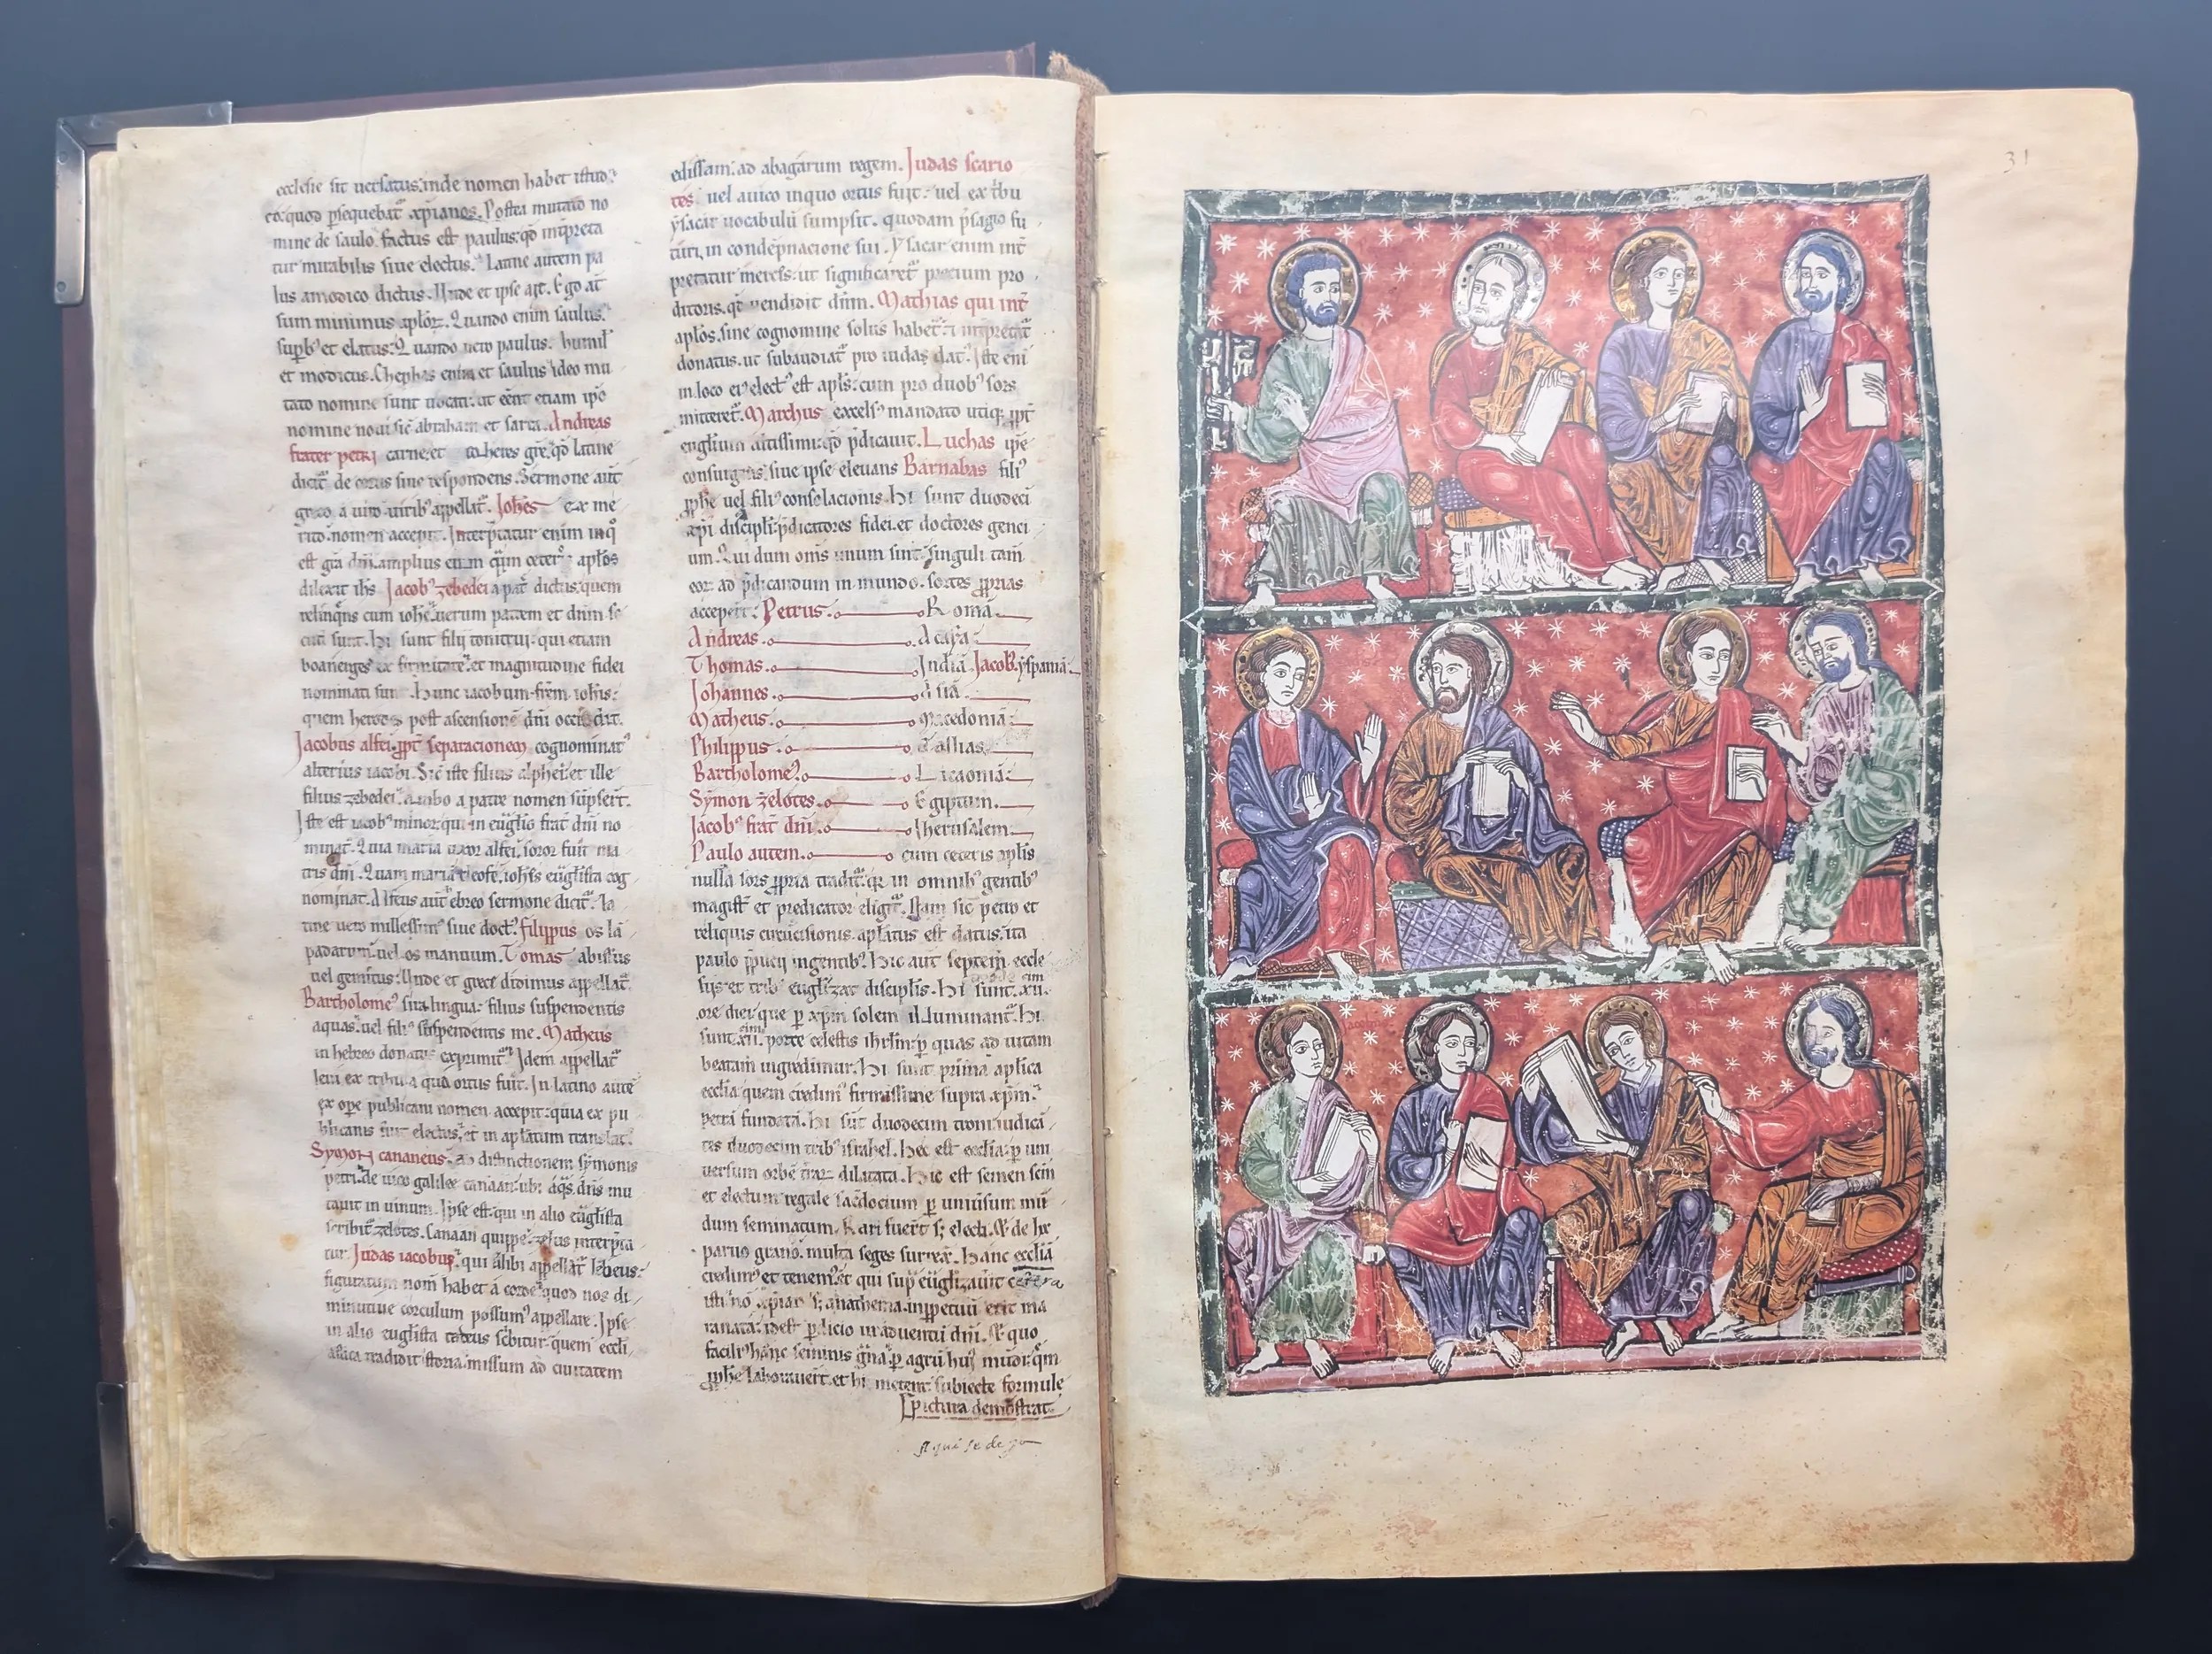 ecclesie sit uersatus: inde nomen habet istud:
eo quod psequebat xpianos. Postea mutato no
mine de saulo factus est paulus: qd intpreta
tur mirabilis siue electus. Latine autem pa
lus a modico dictus. Unde et ipse ait. Ego ac
sum minimus aplor. Quando enim saulus.
supb et elatus: Quando uero paulus. humil
et modicus. Chephas enim et saulus ideo mu
tato nomine sunt uocati: ut eent etiam ipo
nomine noui sic abraham et sarra. Andreas
frater petri carne, et coheres gre. qd latine
dicit decorus siue respondens. Sermone aut
greco a uiro uirilis appellat. Johes ex me
rito nomen accepit. Interptatur enim in quo
est gra dni. amplius eum qm ceteros aplos
dilexit ihs. Jacob zebedei a pat dictus, quem
relinqns cum iohe uerum patrem et dnm se
cuti sunt. hi sunt filij tonitrui. qui etiam
boanerges ex firmitate. et magnitudine fidei
nominati sunt. hunc iacobum frem iohis:
quem herodes post ascensione dni occidit.
Jacobus alfei. ppt separacionem cognominat
alterius iacobi. Sic iste filius alphei: et ille
filius zebedei. Ambo a patre nomen supsert.
Iste est iacob minor. qui in euglio frat dni no
minat. Quia maria uxor alfei. soror fuit ma
tris dni. Quam maria cleofe. iohis euglista cog
nominat. Alfeus aut ebreo sermone dicit. la
tine uero millesim siue doct. filippus os la
padarum. uel os manuum. Tomas abissus
uel geminus: Unde et grece didimus appellat.
Bartholome sira lingua: filius suspendentis
aquas. uel fili suspendentis me. Matheus
in hebreo donatus exprimit. Idem appellat
leui ex tribu a qua ortus fuit. In latino aute
ex ope publicani nomen accepit: quia ex pu
blicanis fuit electus, et in aplatum translat.
Symon cananeus. ad distinctionem symonis
petri. de uico galilee canaan ubi aqs dns mu
tauit in uinum. Ipse est: qui in alio euglista
scribit zelotes. Canaan quippe zelus interpta
tur. Judas iacobus. qui alibi appellat lebeus:
figuratum nom habet a corde quod nos di
minutiue corculum possum appellare. Ipse
in alio euglista tadeus scbitur quem eccli
astica tradidit storia. missum ad ciuitatem
edissam: ad abagarum regem. Judas scario
tes: uel a uico in quo ortus fuit: uel ex tbu
ysacar uocabulu sumpsit. quodam psagio fu
turi, in condepnacione sui. Ysacar enim int
pretatur merces: ut significaret precium pro
ditoris. qt uendidit dnm. Mathias qui int
aplos. sine cognomine solus habet: interpretat
donatus. ut subaudiat pro iudas dat. Iste eni
in loco ei elect est apls: cum pro duob sors
mitteret. Marchus excels mandato utiq: ppt
euglium altissimi: qd pdicauit. Luchas ipse
consurgens: siue ipse eleuans Barnabas fili
pphe uel fili consolacionis. Hi sunt duodeci
xpi discipli: pdicatores fidei. et doctores genci
um. Qui dum oms unum sint: singuli tam
eor ad pdicandum in mundo. sortes pprias
acceperut: Petrus. Roma
Andreas. Acaya
Thomas. India Jacob. yspania
Johannes. Asia
Matheus. Macedonia
Philippus. Gallias
Bartholome. Licaonia
Symon zelotes. Egiptum.
Jacob frat dni. Iherusalem
Paulo autem. cum ceteris aplis
nulla sors ppria tradit: qr in omnib gentib
magist et predicator eligit. Nam sic petro et
reliquis circucisionis. aplatus est datus. ita
paulo ppucij in gentib. Hic aut septem eccle
sijs: et trib euglizat disciplis. Hi sunt. xii.
ore diei que p xpm solem illuminant. Hi
sunt. xii. porte celestis ihrlm: p quas ad uitam
beatam ingredimur. Hi sunt prima aplica
ecclia: quem credim firmissime supra xpm.
petra fundata. Hi sut duodecim troni iudica
tes duodecim trib israhel. Hec est ecclia: p uni
versum orbe trar dilatata. Hic est semen scm
et electum regale sacdocium p uniusum mu
dum seminatum. Rari fuert s; electi. & de hx
paruo grano. multa seges surrex. Hanc ecclia
credim et tenem: et qui sup euglizauit cetera
isti no xpian s; anathema. in ppetuu erit ma
ranata: id est pdicio in aduentu dni. & quo
facili hanc seminis gna p agru hui mudi: qm
pphe laborauert. et hi metent: subiecte formule
Pictura demostrat.
Aqui se de
31